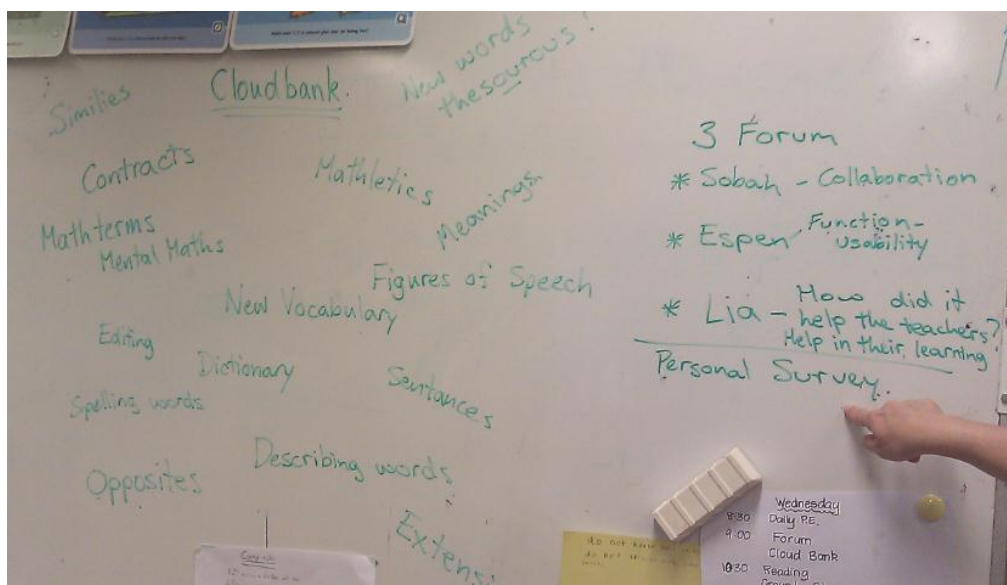 Cloudbank.
Similies
New words
thesourous!
Contracts
Mathletics
Meanings
Math terms
Mental Maths
Figures of Speech
New Vocabulary
Editing
Dictionary
Sentances
Spelling words
Describing words
Opposites
3 Forum
* Sobah - Collaboration
* Espen Function-
usability
* Lia - How did it
help the teachers?
Help in their learning
Personal Survey.
do not
do not
Wednesday
8:30 Daily P.E.
9:00 Forum
Cloud Bank
10:30 Reading